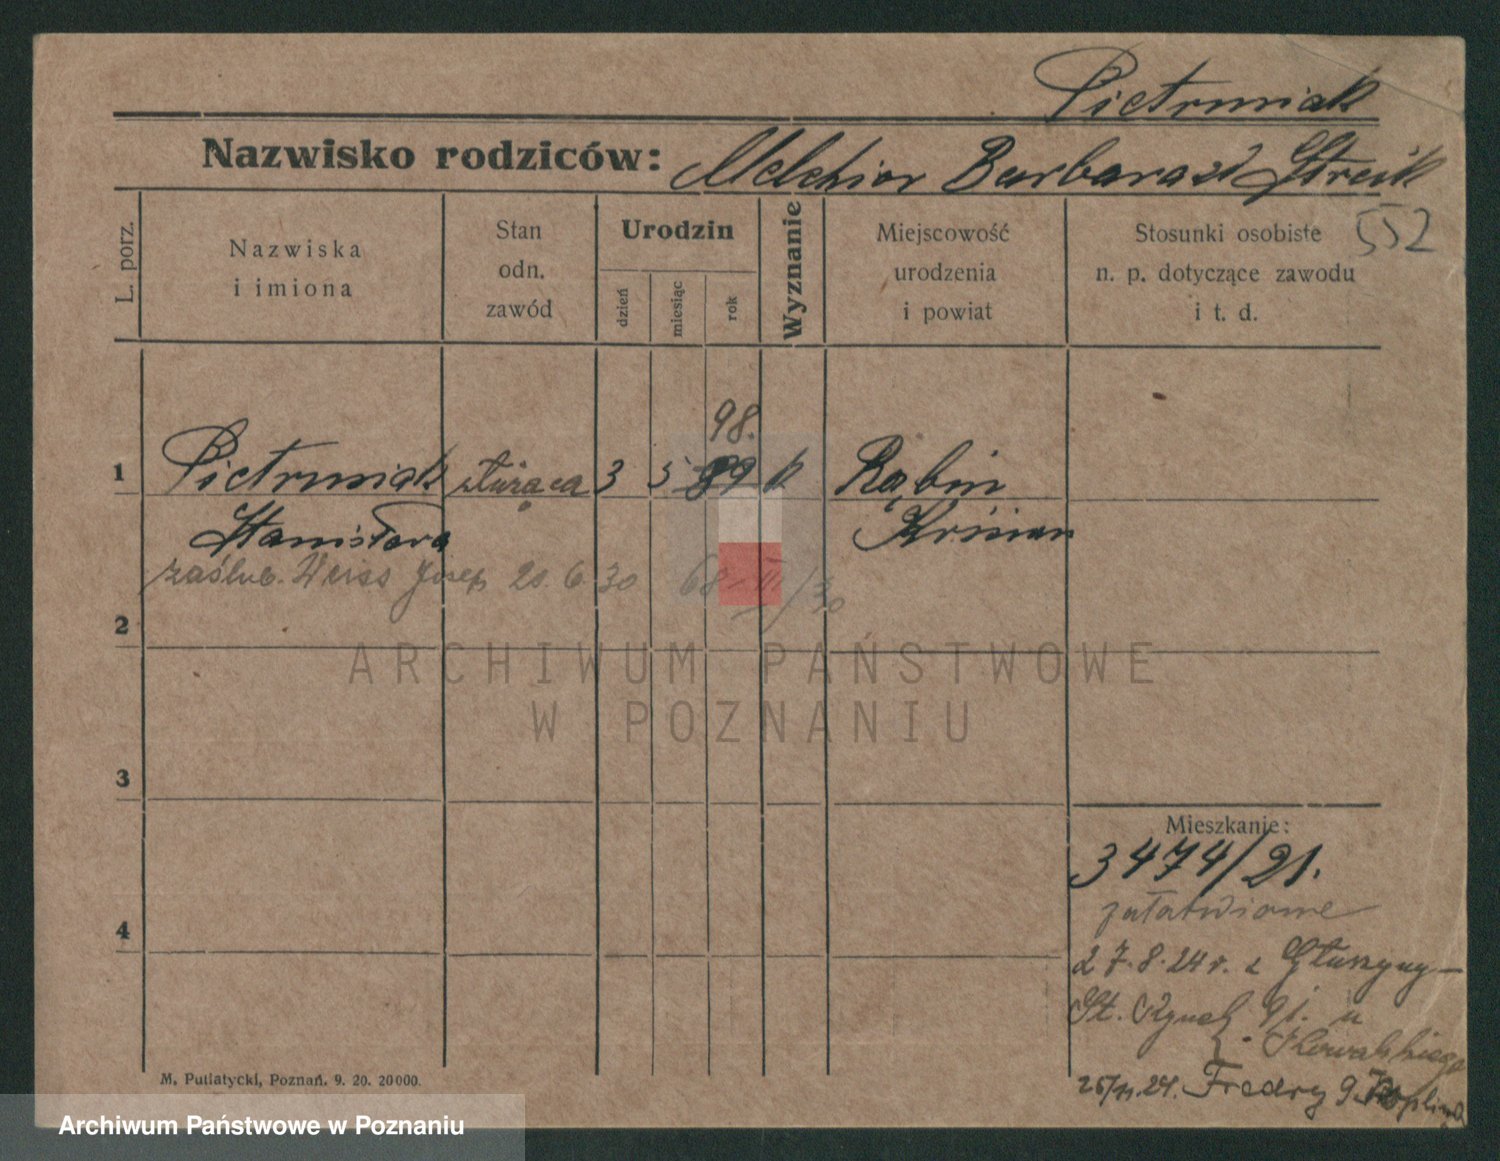 Pietruniak
Nazwisko rodziców: Melchior Barbara zd Streik
552
L. porz.
Nazwiska
i imiona
Stan
odn.
zawód
Urodzin
dzień
miesiąc
rok
Wyznanie
Miejscowość
urodzenia
i powiat
Stosunki osobiste
n. p. dotyczące zawodu
i t. d.
98.
1 Pietruniak służąca 3 5 89 k Rąbin
Stanisława
zaślub. Weiss Josef 20.6.30 68 III/30
2
ARCHIWUM PAŃSTWOWE
W POZNANIU
3
Mieszkanie:
3474/21.
załatwione
4
27.8.24 r. z Głuszyny-
St. Rynek 91. u
Kowalskiego
25/11.24. Fredry 9
M. Putiatycki, Poznań. 9. 20. 20000.
Archiwum Państwowe w Poznaniu